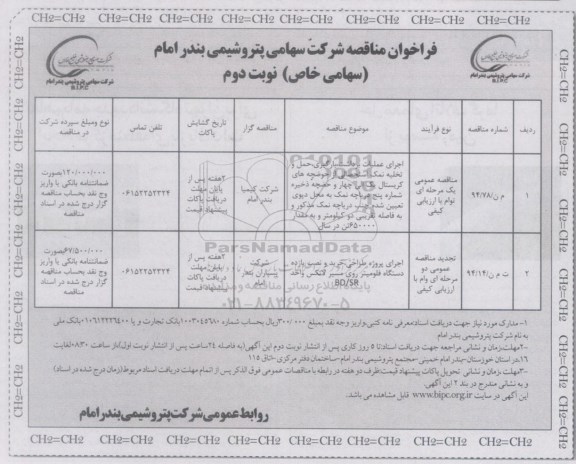 فراخوان مناقصه شرکت سهامی پتروشیمی بندر امام
(سهامی خاص) نوبت دوم
شرکت سهامی پتروشیمی بندر امام
B.I.P.C
ردیف
شماره مناقصه
نوع فرآیند
موضوع مناقصه
مناقصه گزار
تاریخ گشایش پاکات
تلفن تماس
نوع ومبلغ سپرده شرکت در مناقصه
۱
م ن/۹۴/۷۸
مناقصه عمومی
یک مرحله ای
توام با ارزیابی
کیفی
اجرای عملیات بارگیری، حمل و
تخلیه نمک استحصالی از حوضچه های
کریستال یک الی چهار و حوضچه ذخیره
شماره پنج دریاچه نمک به محل دپوی
تعیین شده جنب دریاچه نمک مذکور و
به فاصله تقریبی دو کیلومتر و به مقدار
۶۵۰۰۰۰تن در سال
شرکت کیمیا
بندر امام
۲هفته پس از
پایان مهلت
دریافت پاکات
پیشنهاد قیمت
۰۶۱۵۲۲۵۲۳۲۴
۱۲۰/۰۰۰/۰۰۰بصورت
ضمانتنامه بانکی یا واریز
وجه نقد بحساب مناقصه
گزار درج شده در اسناد
مناقصه
۲
ت م ن/۹۴/۱۴
تجدید مناقصه
عمومی دو
مرحله ای توام با
ارزیابی کیفی
اجرای پروژه طراحی، خرید و نصب یازده
دستگاه فلومیتر روی مسیر لاتکس واحد
BD/SR
شرکت
بسپاران بندر
امام
۲هفته پس از
پایان مهلت
دریافت پاکات
پیشنهاد قیمت
۰۶۱۵۲۲۵۲۳۲۴
۶۷/۵۰۰/۰۰۰بصورت
ضمانتنامه بانکی یا واریز
وجه نقد بحساب مناقصه
گزار درج شده در اسناد
مناقصه
ParsNamadData
۰۲۱-۸۸۳۴۹۶۷۰-۵
۱-مدارک مورد نیاز جهت دریافت اسناد:معرفی نامه کتبی،واریز وجه نقد بمبلغ ۳۰۰/۰۰۰ریال بحساب شماره ۱۰۰۳۰۴۵۶۸۰بانک تجارت و یا ۰۱۰۶۱۲۲۲۶۴۰۰بانک ملی
به نام شرکت پتروشیمی بندر امام
۲-مهلت،زمان و نشانی مراجعه جهت دریافت اسناد:تا ۵ روز کاری پس از انتشار نوبت دوم این آگهی(به فاصله ۲۴ساعت پس از انتشار نوبت اول)از ساعت ۰۸:۳۰لغایت
۱۶در استان خوزستان-بندر امام خمینی-مجتمع پتروشیمی بندر امام-ساختمان دفتر مرکزی-اتاق ۱۱۵
۳-مهلت،زمان و نشانی تحویل پاکات پیشنهاد قیمت:ظرف دو هفته در رابطه با مناقصات عمومی فوق الذکر پس از اتمام مهلت دریافت اسناد مربوط(زمان درج شده در اسناد)
و به نشانی مندرج در بند ۲ این آگهی.
این آگهی در سایت www.bipc.org.ir قابل مشاهده می باشد.
روابط عمومی شرکت پتروشیمی بندر امام